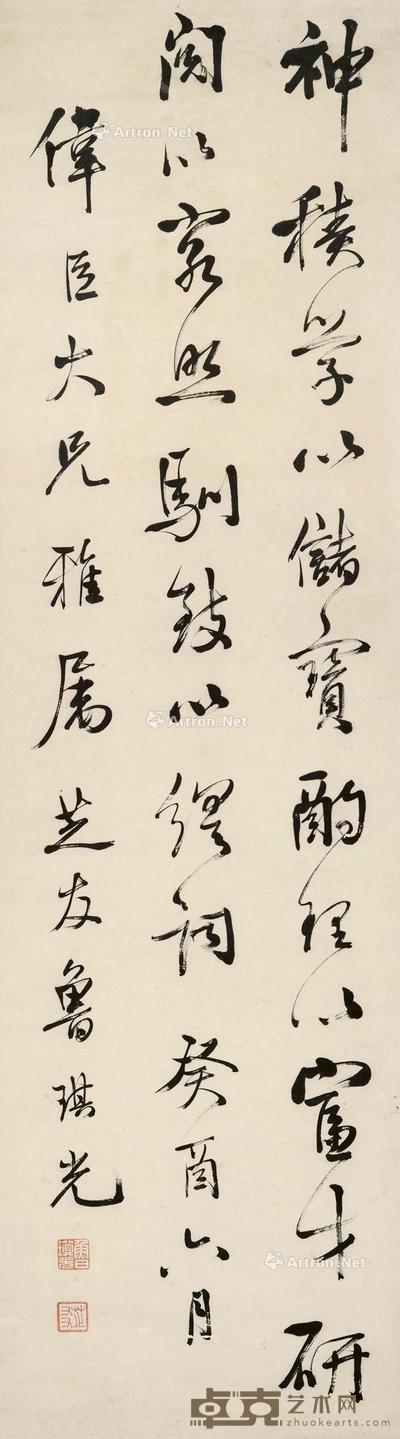 神積學以儲寶酌理以富才研
閱以窮照馴致以繹詞癸酉六月
偉臣大兄雅属芝友魯琪光
芝友
Artron.Net
Artron.Net
Artron.Net
Artron.Net
Artron.Net
Artron.Net
卓克艺术网
zhuokearts.com